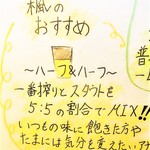 楓の
おすすめ
～ハーフ&ハーフ～
一番搾りとスタウトを
5:5の割合でMIX!!
いつもの味に飽きた方や
たまには気分を変えたい
普